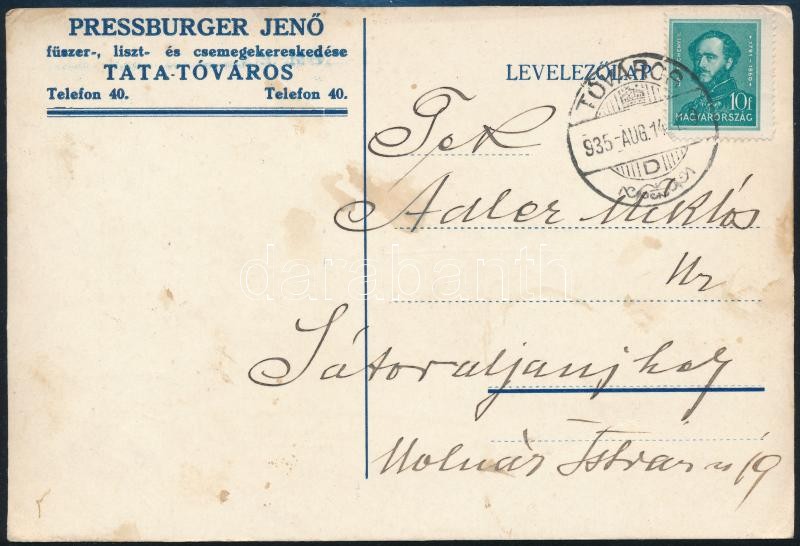 PRESSBURGER JENŐ
füszer-, liszt- és csemegekereskedése
TATA-TÓVÁROS
Telefon 40. Telefon 40.
LEVELEZŐLAP
TÓVÁROS
935-AUG.14.
D
SZÉCHENYI I. 1791-1860
10f
MAGYARORSZÁG
Tek
Adler Miklós
Ur
Sátoraljaujhely
Molnár István u 19
darabanth